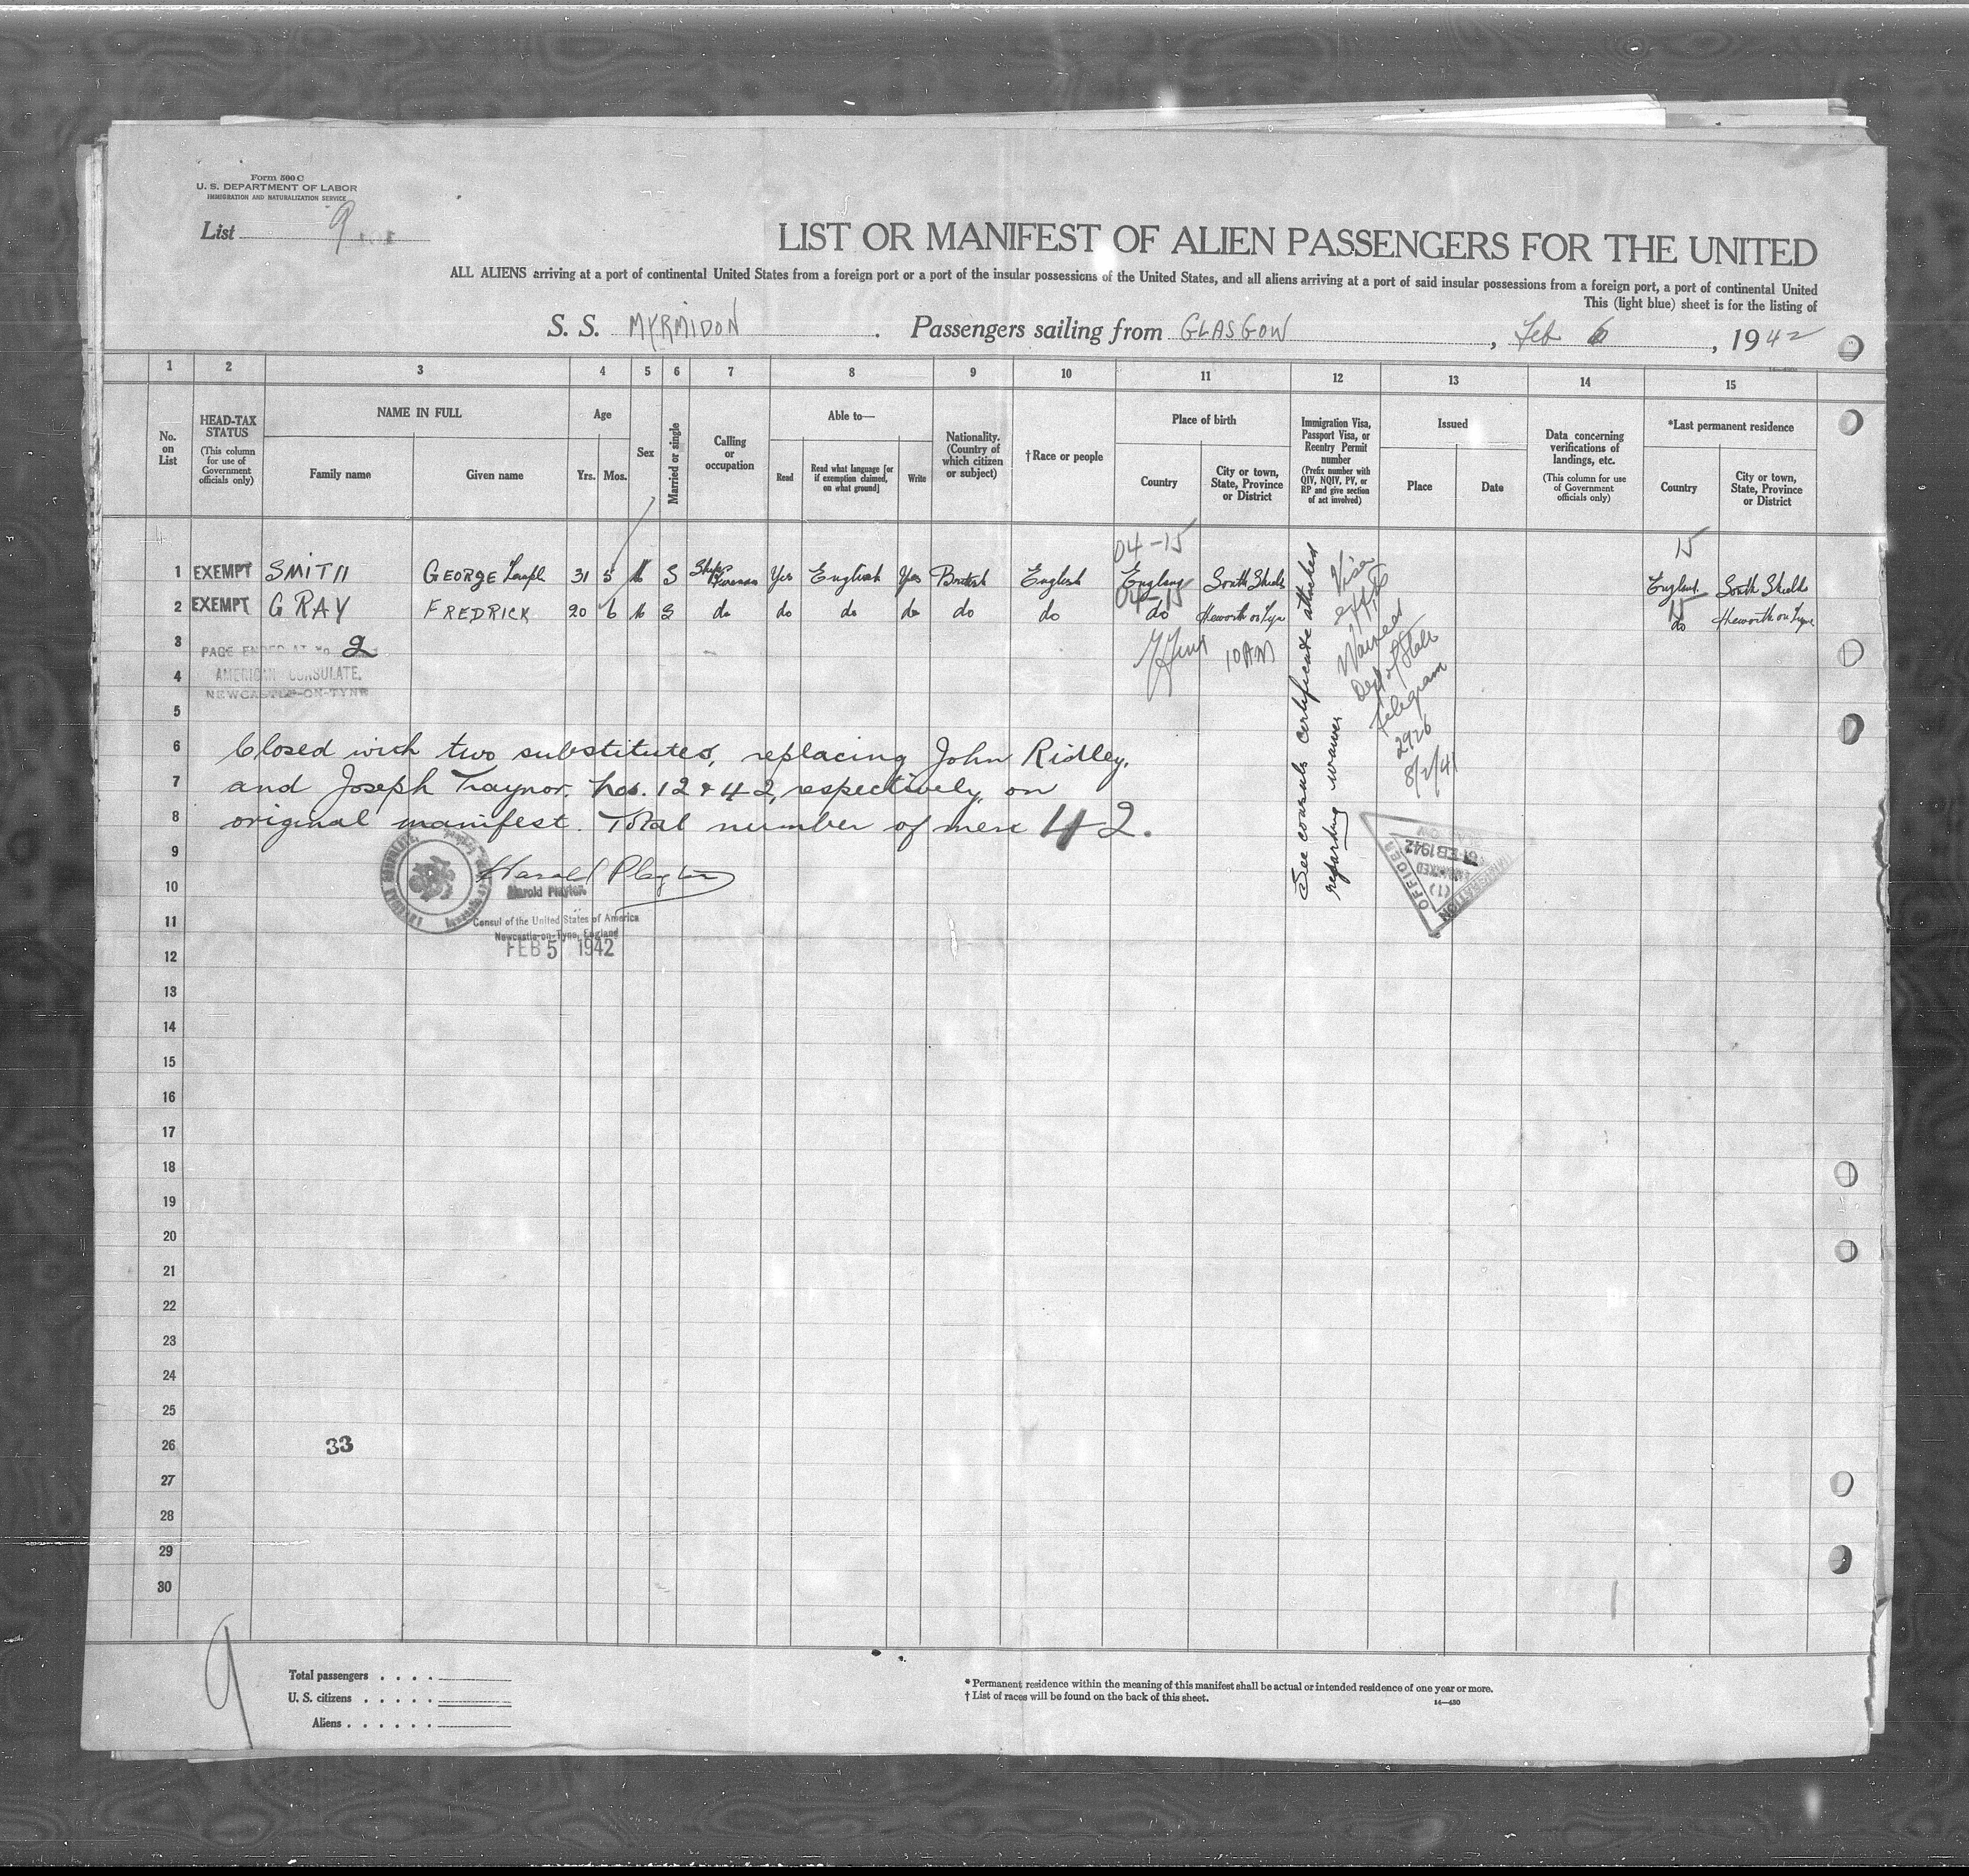 Form 500 C
U. S. DEPARTMENT OF LABOR
IMMIGRATION AND NATURALIZATION SERVICE
List 9
LIST OR MANIFEST OF ALIEN PASSENGERS FOR THE UNITED
ALL ALIENS arriving at a port of continental United States from a foreign port or a port of the insular possessions of the United States, and all aliens arriving at a port of said insular possessions from a foreign port, a port of continental United
This (light blue) sheet is for the listing of
S. S. MYRMIDON. Passengers sailing from GLASGOW, Feb 6, 1942
1 2 3 4 5 6 7 8 9 10 11 12 13 14 15
No. on List
HEAD-TAX STATUS (This column for use of Government officials only)
NAME IN FULL
Family name
Given name
Age
Yrs. Mos.
Sex
Married or single
Calling or occupation
Able to—
Read
Read what language [or if exemption claimed, on what ground]
Write
Nationality. (Country of which citizen or subject)
†Race or people
Place of birth
Country
City or town, State, Province or District
Immigration Visa, Passport Visa, or Reentry Permit number (Prefix number with QIV, NQIV, PV, or RP and give section of act involved)
Issued
Place
Date
Data concerning verifications of landings, etc. (This column for use of Government officials only)
*Last permanent residence
Country
City or town, State, Province or District
04-15 15
1 EXEMPT SMITH GEORGE 31 5 M S Yes English Yes British English England South Shields England South Shields
04-15 15
2 EXEMPT GRAY FREDRICK 20 6 M S do do do do do do do Heworth on Tyne do Heworth on Tyne
3 PAGE ENDED AT No. 2
10 AM
4 AMERICAN CONSULATE,
NEWCASTLE-ON-TYNE
5
6 Closed with two substitutes, replacing John Ridley,
7 and Joseph Traynor, nos. 12 & 42, respectively, on
8 original manifest. Total number of men 42.
9
Harold Playter
10 Harold Playter
11 Consul of the United States of America
Newcastle-on-Tyne, England
FEB 5 1942
See consuls certificate attached
regarding waiver
Visa
Waived
Dept of State
telegram
2926
8/2/41
IMMIGRATION OFFICER
(1)
FEB 1942
12
13
14
15
16
17
18
19
20
21
22
23
24
25
26 33
27
28
29
30
9
Total passengers
U. S. citizens
Aliens
* Permanent residence within the meaning of this manifest shall be actual or intended residence of one year or more.
† List of races will be found on the back of this sheet.
14—430